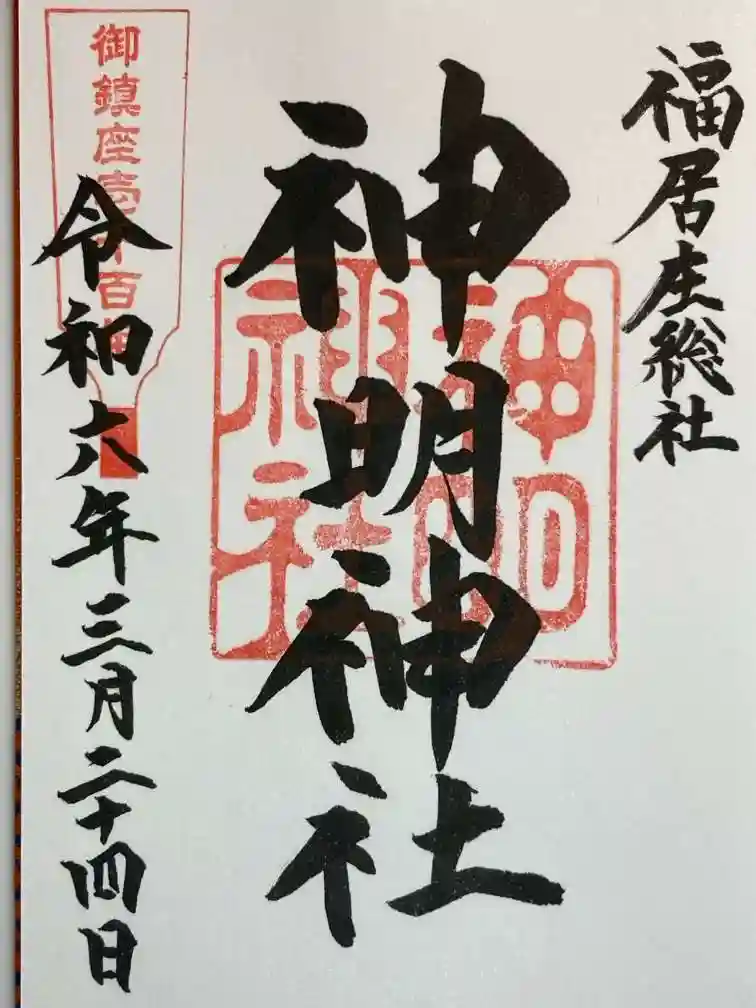 福居庄総社
神明神社
神明
神社
御鎮座壱千百年
令和六年三月二十四日